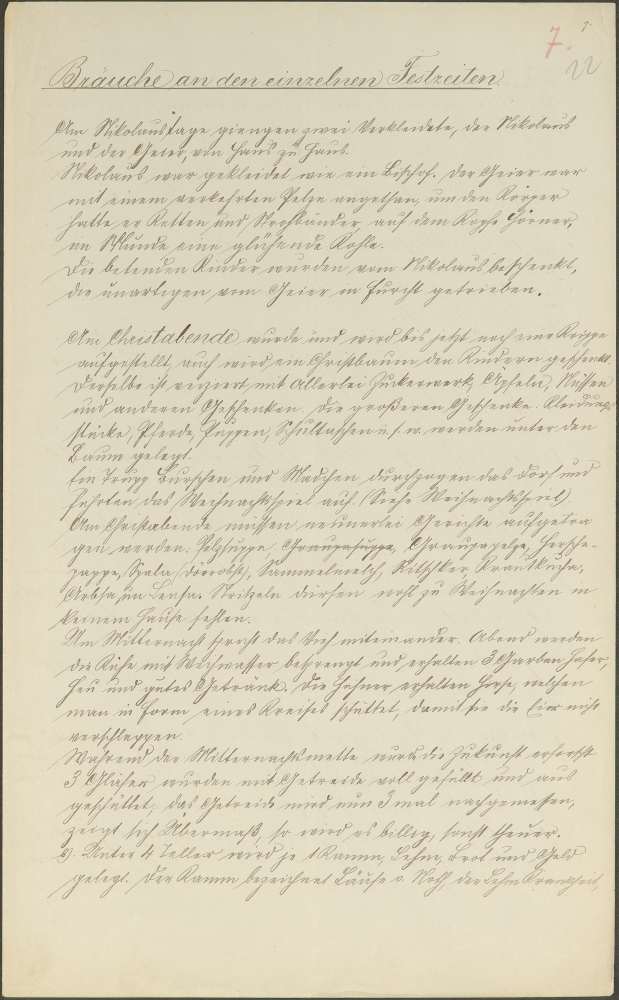 7.
22
Bräuche an den einzelnen Festzeiten.
Am Nikolaustage giengen zwei Verkleidete, der Nikolaus
und der Geier, von Haus zu Haus.
Nikolaus war gekleidet wie ein Bischof. Der Geier war
mit einem verkehrten Pelze angethan, um den Körper
hatte er Ketten und Strohbänder, auf dem Kopfe Hörner,
im Munde eine glühende Kohle.
Die betenden Kinder wurden vom Nikolaus beschenkt,
die unartigen vom Geier in Furcht getrieben.
Am Christabende wurde und wird bis jetzt noch eine Krippe
aufgestellt, auch wird ein Christbaum den Kindern geschenkt.
Derselbe ist verziert mit allerlei Zuckerwerk, Äpfeln, Nüssen
und anderen Geschenken. Die größeren Geschenke: Kleidungs
stücke, Pferde, Puppen, Schultaschen u. s. w. werden unter den
Baum gelegt.
Ein Trupp Burschen und Mädchen durchzogen das Dorf und
führten das Weihnachtsspiel auf. (Siehe Weihnachtsspiel).
Am Christabende müssen neunerlei Gerichte aufgetra
gen werden: Pelzsuppe, Graupasuppe, Graupapelze, Hersche-
pappe, Spala (Dörrobst), Sammelmelch, Kitschker, Krautkucha,
Arbsa, Lensa. Stritzeln dürfen wohl zu Weihnachten in
keinem Hause fehlen.
Um Mitternacht spricht das Vieh miteinander. Abend werden
die Kühe mit Weihwasser besprengt und erhalten 3 Garben Hafer,
Heu und gutes Getränk. Die Hühner erhalten Hirse, welchen
man in Form eines Kreises schüttet, damit sie die Eier nicht
verschleppen.
Während der Mitternachtsmette wird die Zukunft erforscht
3 Gläser wurden mit Getreide voll gefüllt und aus
geschüttet; das Getreide wird nun 3 mal nachgemessen,
zeigt sich Übermaß, so wird es billig, sonst theuer.
Unter 4 Teller wird je 1 Kamm, Lehm, Brot und Geld
gelegt. Der Kamm bezeichnet Läuse o. Noth, der Lehm Krankheit,